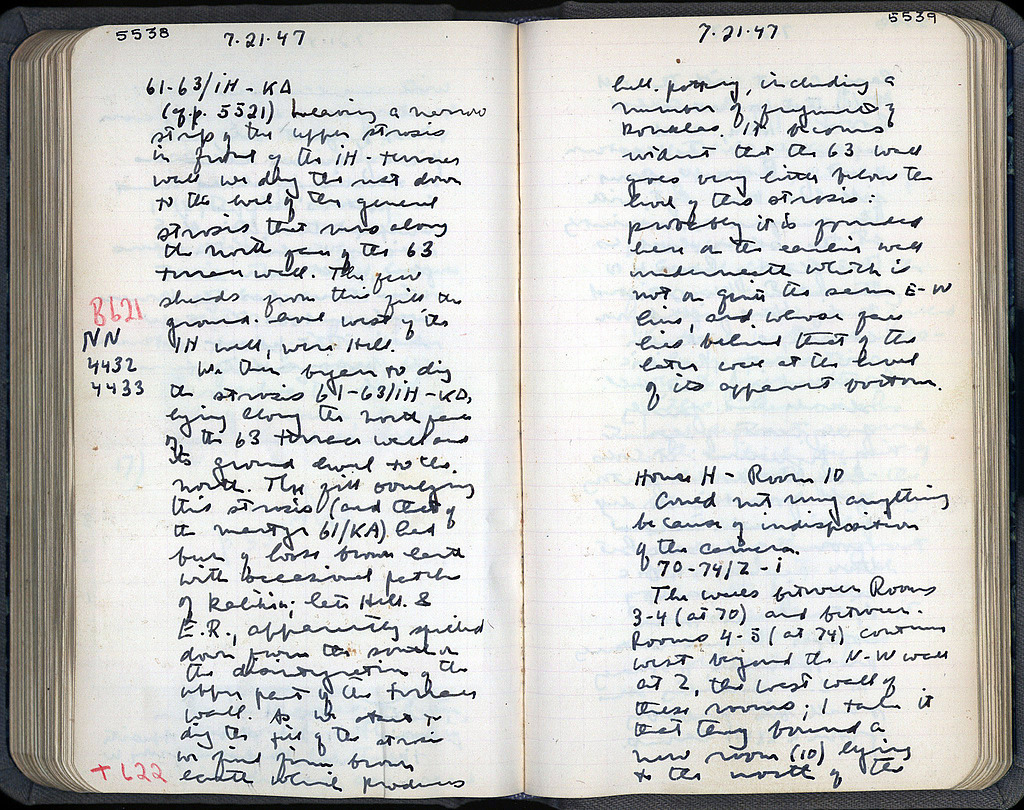 5538
7.21.47
61-63/iH-KA
(cf. p. 5521) Leaving a narrow
strip of the upper strosis
in front of the iH-terrace
wall we dig the rest down
to the level of the general
strosis that runs along
the north face of the 63
terrace wall. The few
sherds from this fill to
ground level west of the
iH wall, were Hell.
B621
NN
4432
4433
We then began to dig
the strosis 61-63/iH-KA,
lying along the north face
of the 63 terrace wall and
its ground level to the
north. The fill overlying
this strosis (and that of
the 61/KA) had
been of loose brown earth
with occasional patches
of kalikia; late Hell. &
E.R., apparently spilled
down from the south on
the disintegration of the
upper part of the terrace
wall. As we start to
dig the fill of the strosis
we find firm brown
earth which produces
+ L22
5539
7.21.47
hell. pottery, including a
number of fragments of
koukles. It becomes
evident that the 63 wall
goes very little below the
level of this strosis:
probably it is founded
here on the earlier wall
underneath which is
not on quite the same E-W
line, and whose face
lies behind that of the
later wall at the level
of its apparent bottom.
House H - Room 10
Could not any anything
because of indisposition
of the camera.
70-74/Z-i
The walls between Rooms
3-4 (at 70) and between
Rooms 4-5 (at 74) continue
west beyond the N-W wall
at Z, the west wall of
these rooms; I take it
that they bound a
new room (10) lying
to the north of the